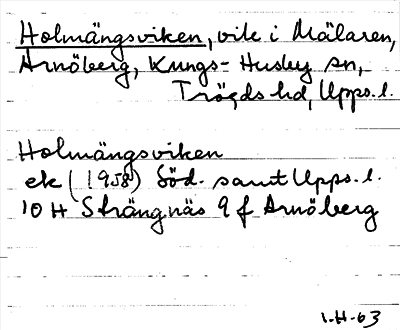 Holmängsviken, vik i Mälaren,
Arnöberg, Kungs-Husby sn,
Trögds hd, Upps. l.
Holmängsviken
ek (1958) Söd. samt Upps. l.
10 H Strängnäs 9 f Arnöberg
1.H.63